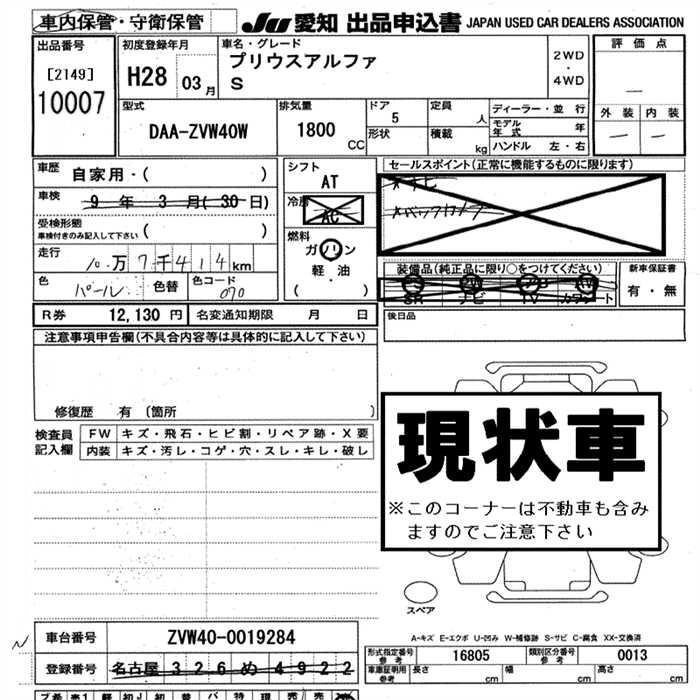 車内保管・守衛保管 JU 愛知 出品申込書 JAPAN USED CAR DEALERS ASSOCIATION
出品番号 初度登録年月 車名・グレード 評価点
[2149] H28 03月 プリウスアルファ 2WD
・
10007 S 4WD
外装 内装
型式 排気量 ドア 定員 ディーラー・並行
DAA-ZVW40W 1800CC 5 人 モデル年式 年
形状 積載 kg ハンドル 左・右
車歴 自家用・( ) シフト セールスポイント(正常に機能するものに限ります)
車検 9年3月(30日) AT
ナビ
受検形態 冷房
車検付きのみ記入して下さい ( ) AC バックカメラ
走行 10万7千414km 燃料
ガソリン
色 パール 色替 色コード 070 軽・油 装備品(純正品に限り○をつけてください) 新車保証書
( ) SR ナビ TV カワシート 有・無
R券 12,130円 名変通知期限 月 日 後日品
注意事項申告欄(不具合内容等は具体的に記入して下さい)
修復歴 有 (箇所 )
検査員 FW キズ・飛石・ヒビ割・リペア跡・X要
記入欄 内装 キズ・汚レ・コゲ・穴・スレ・キレ・破レ
現状車
※このコーナーは不動車も含み
ますのでご注意下さい
スペア
車台番号 ZVW40-0019284 A-キズ E-エクボ U-凹み W-補修跡 S-サビ C-腐食 XX-交換済
型式指定番号 参考 16805 類別区分番号 参考 0013
登録番号 名古屋 326 め 4922 車庫証明用 参考 長さ cm 幅 cm 高さ cm